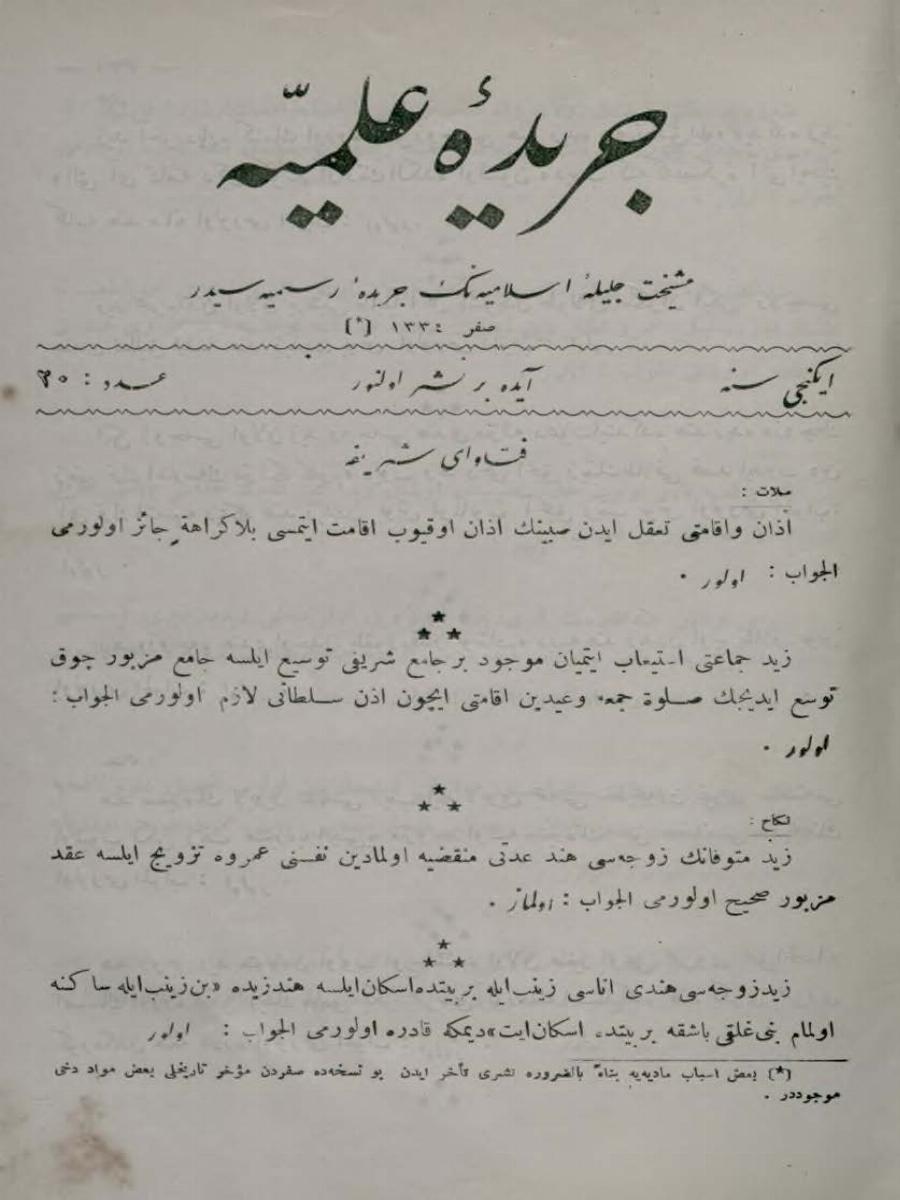 جريدۀ علميّه
مشيخت جليلۀ اسلاميه‌نك جريدۀ رسميه سيدر
صفر ١٣٣٤ (*)
ايكنجى سنه
آيده بر نشر اولنور
عدد :
فتاواى شريفه
صلات :
اذان واقامتى تعقل ايدن صبينك اذان اوقيوب اقامت ايتمسى بلا كراهة جائز اولورمى
الجواب : اولور .
زيد جماعتى استيعاب ايتميان موجود بر جامع شريفى توسيع ايلسه جامع مزبور چوق
توسع ايديجك صلوة جمعه وعيدين اقامتى ايچون اذن سلطانى لازم اولورمى الجواب :
اولور .
نكاح :
زيد متوفانك زوجه‌سى هند عدتى منقضيه اولمادين نفسنى عمروه تزويج ايلسه عقد
مزبور صحيح اولورمى الجواب : اولماز .
زيد زوجه‌سى هندى اناسى زينب ايله بر بيتده اسكان ايلسه هند زيده «بن زينب ايله ساكنه
اولمام بنى غلقى باشقه بر بيتده اسكان ايت» ديمكه قادره اولورمى الجواب : اولور
(*) بعض اسباب ماديه‌يه بناءً بالضروره نشرى تأخر ايدن بو نسخه‌ده صفردن مؤخر تاريخلى بعض مواد دخى
موجوددر .